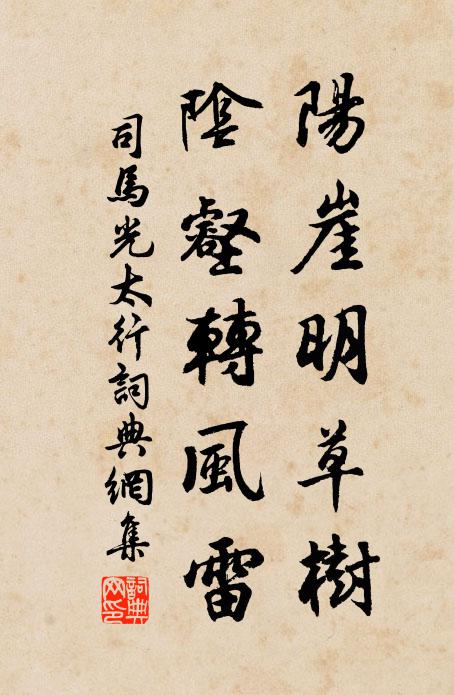 陽崖明草樹
陰壑轉風雷
司馬光太行詞典網集
詞典網印